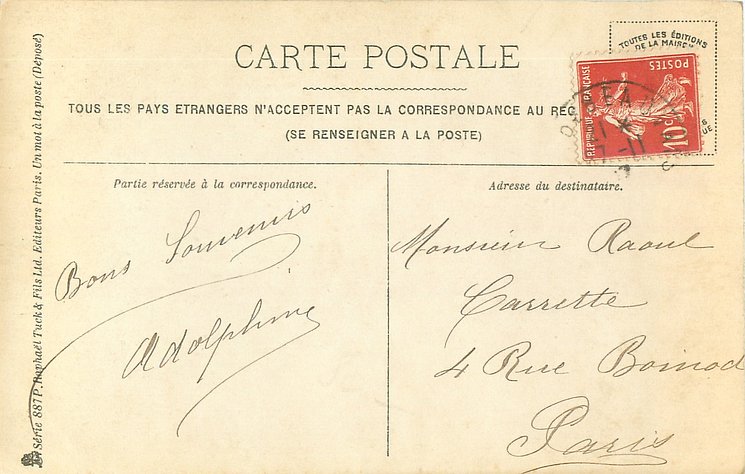 TOUTES LES ÉDITIONS
DE LA MAISON
CARTE POSTALE
POSTES
REPUBLIQUE FRANÇAISE
10c
TOUS LES PAYS ETRANGERS N'ACCEPTENT PAS LA CORRESPONDANCE AU
(SE RENSEIGNER A LA POSTE)
Partie réservée à la correspondance.
Adresse du destinataire.
Bons Souvenirs
Adolphine
Monsieur Raoul
Carrette
4 Rue Boinod
Paris
Série 887 P. Raphaël Tuck & Fils Ltd. Editeurs Paris. Un mot à la poste (Déposé)